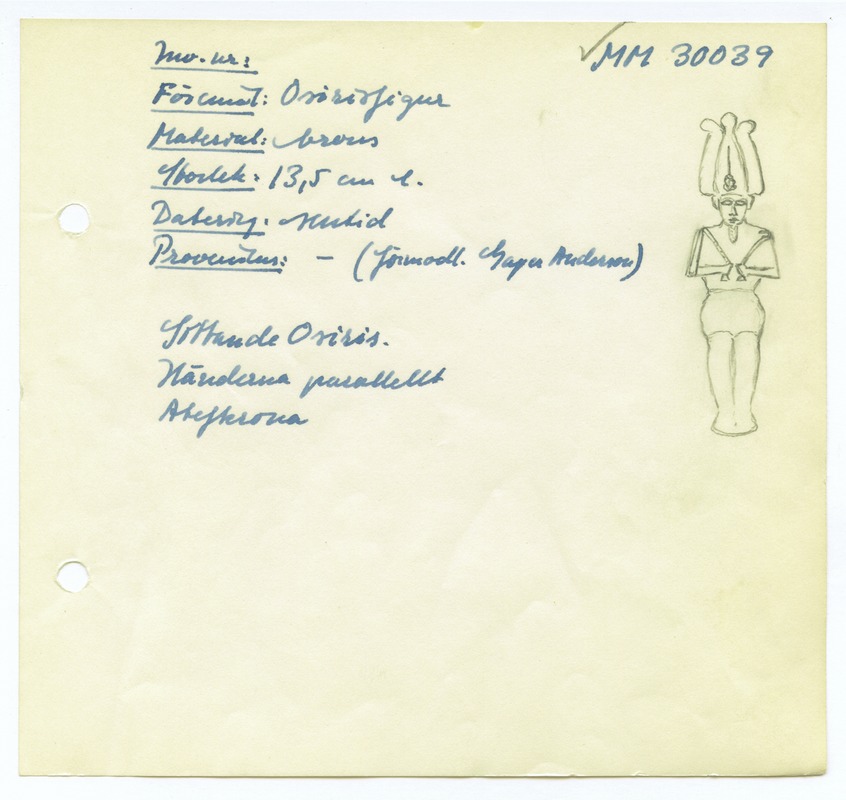 MM 30039
Inv.nr:
Föremål: Osirisfigur
Material: brons
Storlek: 13,5 cm l.
Datering: sentid
Proveniens: - (förmodl. Gayer Anderson)
Sittande Osiris.
Händerna parallellt
Atefkrona